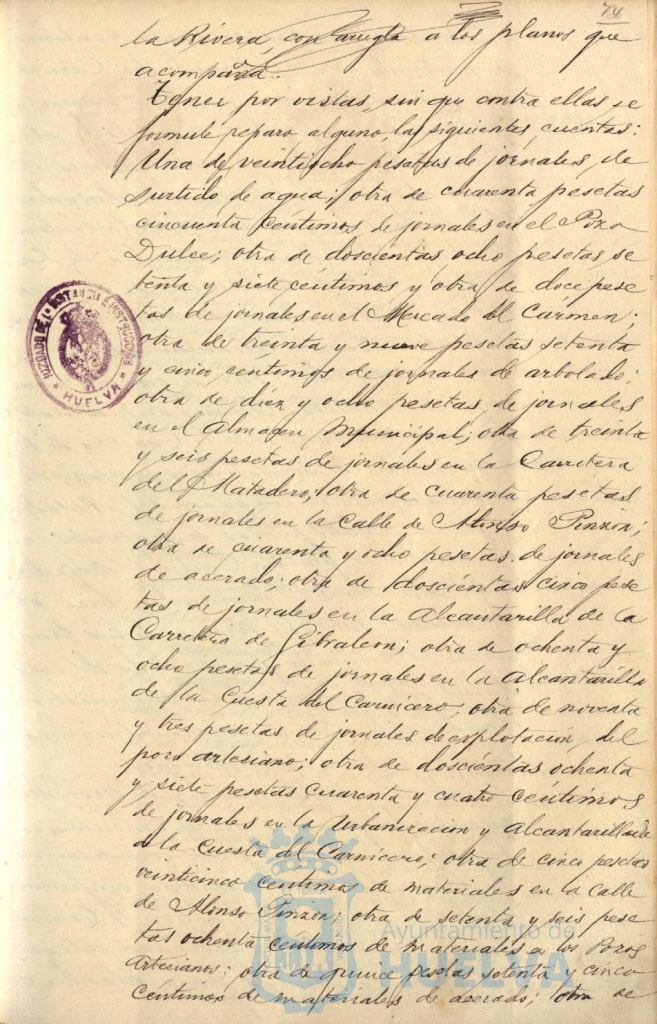 74
la Rivera, con arreglo a los planos que
acompaña.
Tener por vistas, sin que contra ellas se
formule reparo alguno, las siguientes cuentas:
Una de veintiocho pesetas de jornales, de
surtido de agua; otra de cuarenta pesetas
cincuenta céntimos de jornales en el Pozo
Dulce; otra de doscientas ocho pesetas se
tenta y siete céntimos y otra de doce pese
tas de jornales en el Mercado del Carmen;
otra de treinta y nueve pesetas setenta
y cinco céntimos de jornales de arbolado;
otra de diez y ocho pesetas de jornales
en el Almacen Municipal; otra de treinta
y seis pesetas de jornales en la Carretera
del Matadero, otra de cuarenta pesetas
de jornales en la Calle de Alonso Pinzón;
otra de cuarenta y ocho pesetas de jornales
de acerado; otra de doscientas cinco pese
tas de jornales en la Alcantarilla de la
Carretera de Gibraleon; otra de ochenta y
ocho pesetas de jornales en la Alcantarilla
de la Cuesta del Carnicero; otra de noventa
y tres pesetas de jornales de explotación del
pozo artesiano; otra de doscientas ochenta
y siete pesetas cuarenta y cuatro céntimos
de jornales en la Urbanizacion y Alcantarillado
de la Cuesta del Carnicero; otra de cinco pesetas
veinticinco centimos de materiales en la Calle
de Alonso Pinzón; otra de setenta y seis pese
tas ochenta centimos de materiales en los Pozos
Artesianos; otra de quince pesetas setenta y cinco
céntimos de materiales de acerado; otra de
JUZGADO DE 1ª INSTANCIA E INSTRUCCION
* HUELVA *
Ayuntamiento de
HUELVA